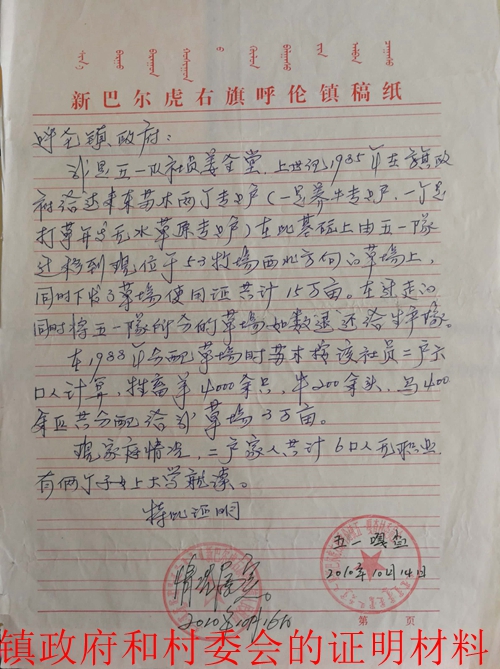 新巴尔虎右旗呼伦镇稿纸
呼伦镇政府：
我是五一队社员姜全堂，上世纪1985年在旗政
府给达来东苏木两个专业户（一是养牛专业户，一个是
打草开发无水草原专业户）在此基础上由五一队
迁移到现位于53牧场西北方向的草場上，
同时下发了草場使用证共计15万亩。在迁走的
同时将五一隊所分的草場如数退还给生产隊。
在1988年分配草場时苏木按该社员二户六
口人计算，牲畜羊4000余只，牛200余头，馬400
余匹共分配给我草場3万亩。
现家庭情况，二户家人共计6口人无职业
有俩个子女上大学就读。
特此证明
五一嘎查
2010年10月14日
情况属实。
2010年10月16日
第 页
镇政府和村委会的证明材料